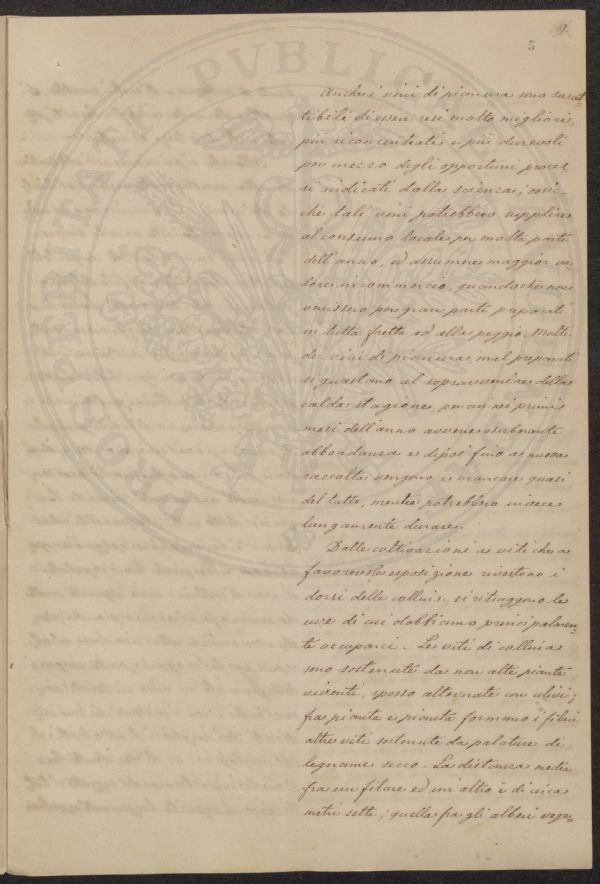 2
5
Anche i vini di pianura sono suscet=
tibili di essere resi molto migliori
più riconcentrati e più durevoli
per mezzo degli opportuni proces
si indicati dalla scienza; cosic-
chè tali vini potrebbero supplire
al consumo locale per molta parte
dell'anno, ed assumere maggior va
lore in commercio, quandochè non
venissero per gran parte preparati
in tutta fretta ed alla peggio. Molti
dei vini di pianura mal preparati
si guastano al sopravvenire della
calda stagione, per cui nei primi
mesi dell'anno avvene esuberante
abbondanza e dipoi fino a nuova
raccolta vengono a mancare quasi
del tutto, mentre potrebbero invece
lungamente durare.
Dalle coltivazioni a viti che a
favorevole esposizione rivestono i
dorsi delle colline, si ritraggono le
uve di cui dobbiamo principalmen=
te occuparci. Le viti di collina
sono sostenute da non alte piante
viventi, spesso alternate con ulivi;
fra pianta e pianta formano i filari
altre viti sostenute da palature di
legname secco. La distanza media
fra un filare ed un'altro è di circa
metri sette; quella fra gli alberi vege=
PVBLICAE
PROSPERITATI